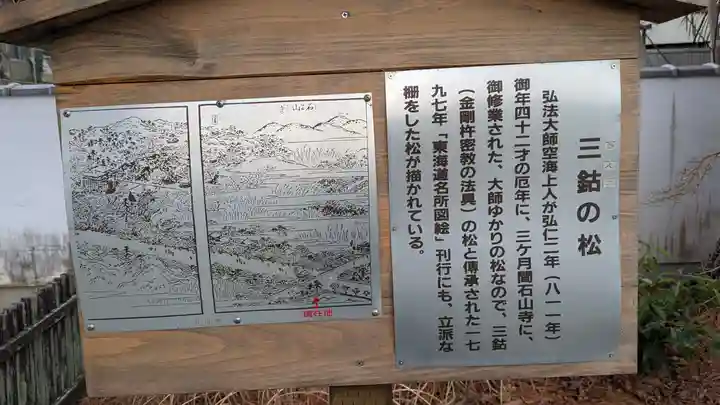 三鈷の松
弘法大師空海上人が弘仁二年（八一一年）
御年四十二才の厄年に、三ケ月間石山寺に、
御修業された、大師ゆかりの松なので、三鈷
（金剛杵密教の法具）の松と伝承された一七
九七年「東海道名所図絵」刊行にも、立派な
柵をした松が描かれている。
石山
現在地